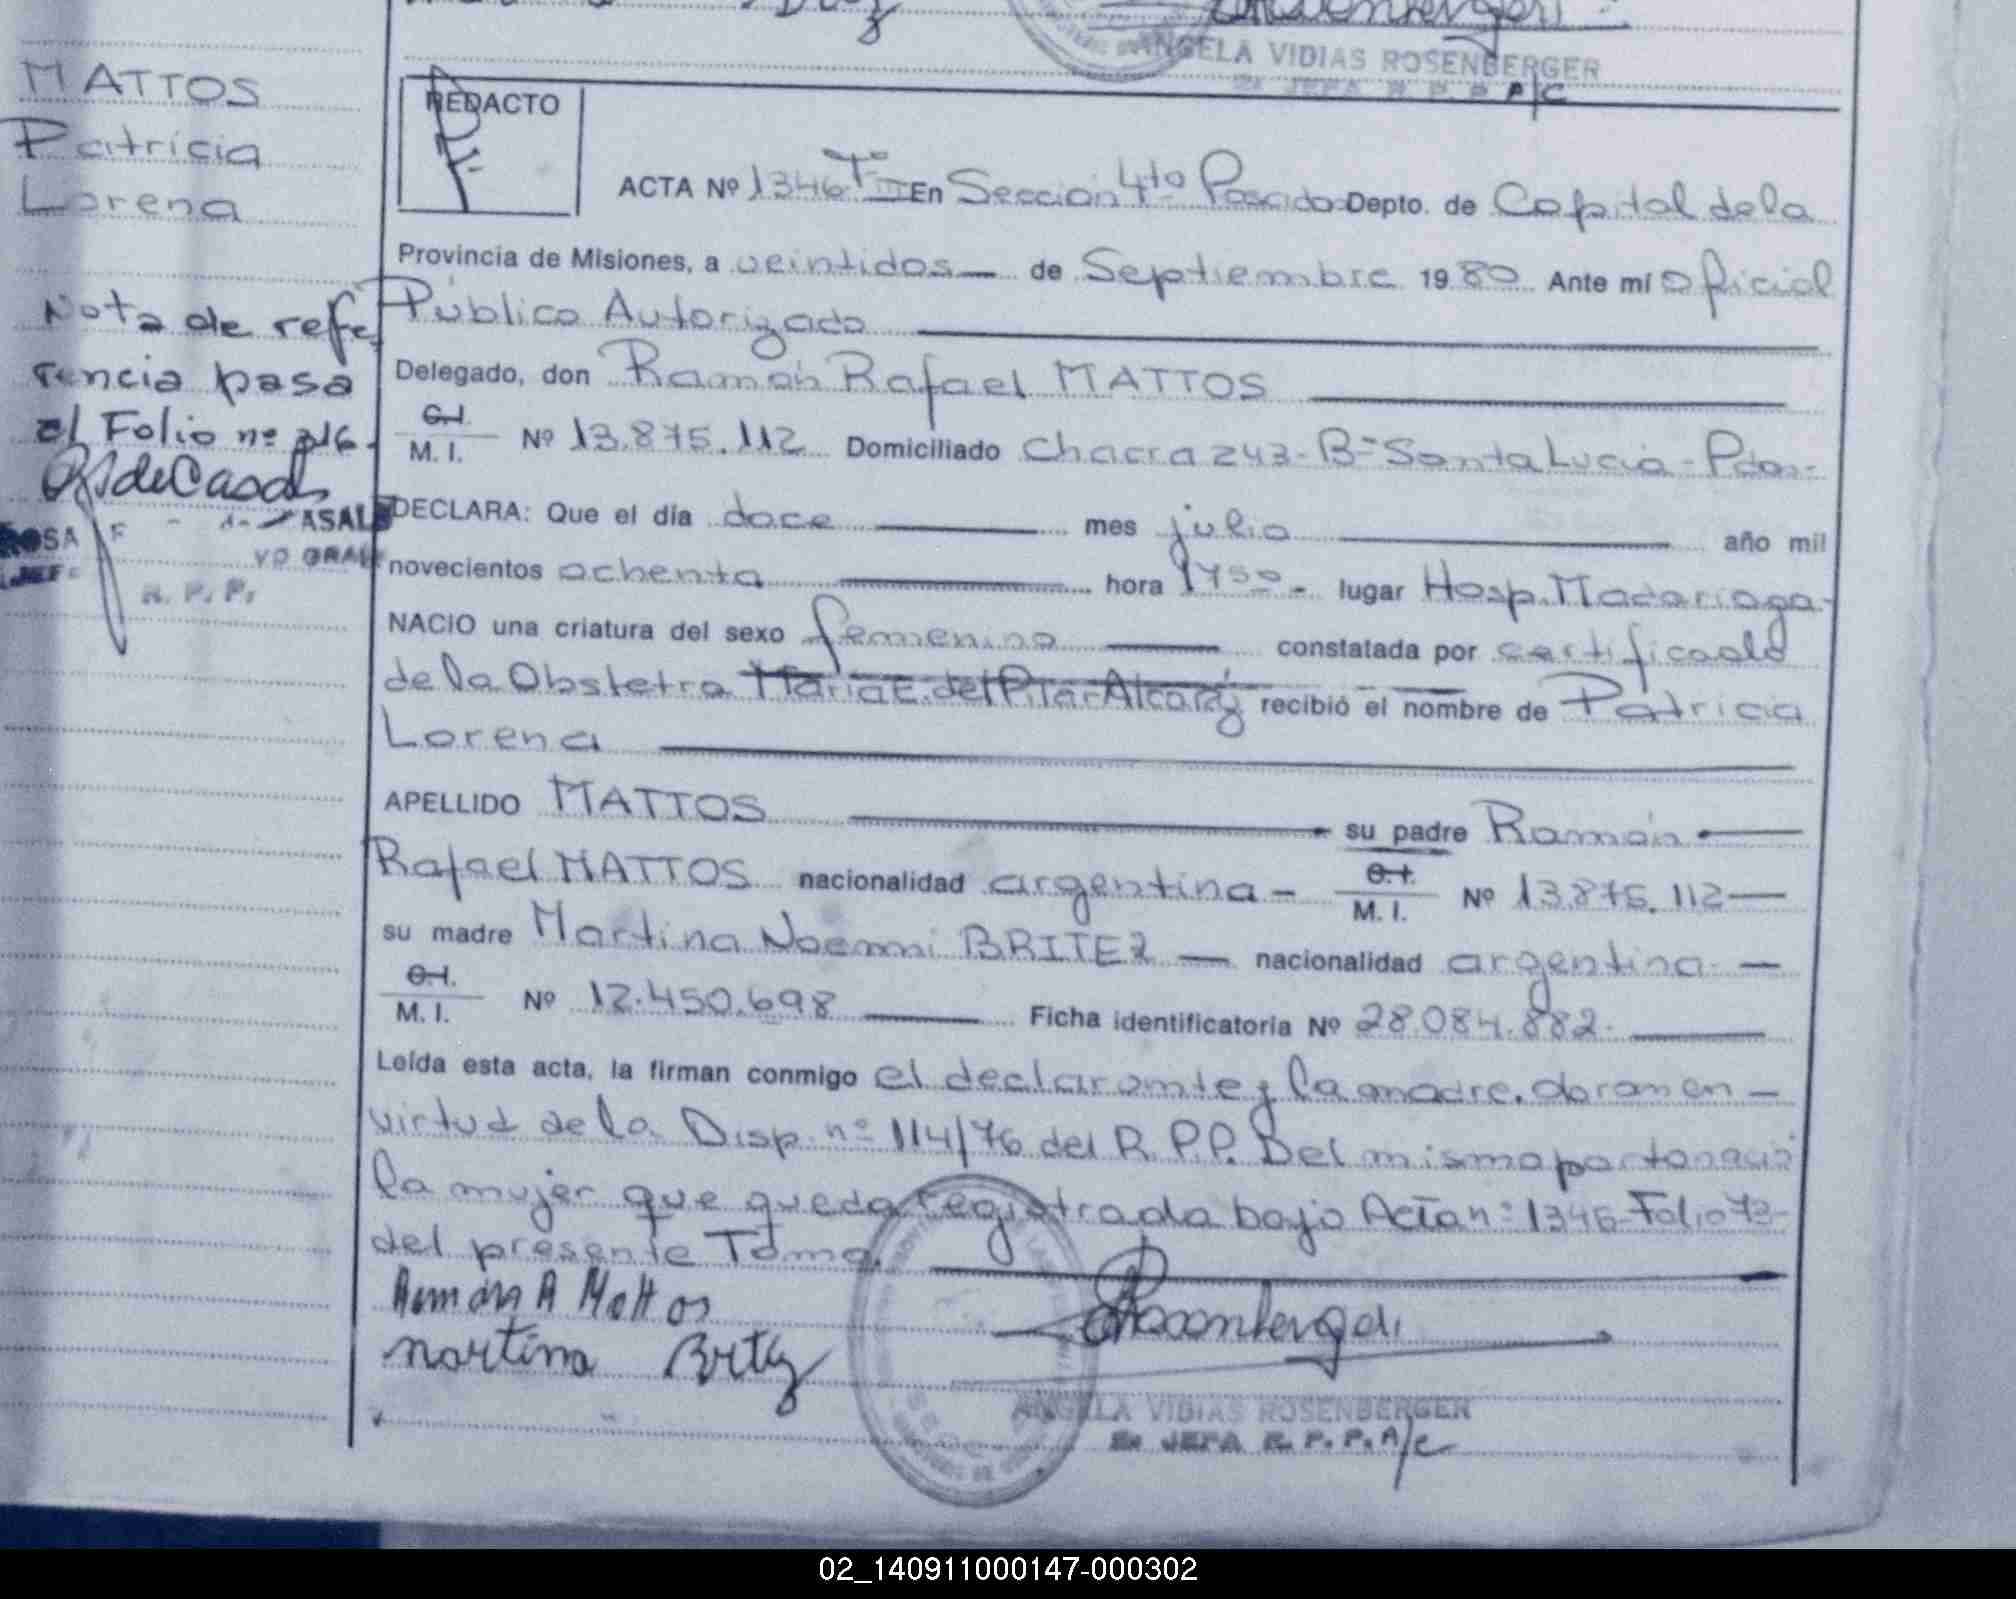 ANGELA VIDIAS ROSENBERGER
2a JEFA R. P. P. A/C
MATTOS
Patricia
Lorena
Nota de refe
rencia pasa
al Folio nº 316.
ROSA
ASAL
JEF
R. P. P.
REDACTO
ACTA Nº 1346 Tº III En Sección 4to Posadas Depto. de Capital de la
Provincia de Misiones, a veintidos de Septiembre 1980 Ante mí Oficial
Público Autorizado
Delegado, don Ramón Rafael MATTOS
C.I.
M. I. Nº 13.875.112 Domiciliado Chacra 243-Bº Santa Lucia-Pdas-
DECLARA: Que el día doce mes julio año mil
novecientos ochenta hora 1750- lugar Hosp. Madariaga-
NACIO una criatura del sexo femenino constatada por certificado
de la Obstetra Maria E. del Pilar Alcaráz recibió el nombre de Patricia
Lorena
APELLIDO MATTOS su padre Ramón
Rafael MATTOS nacionalidad argentina - C.I.
M. I. Nº 13.875.112
su madre Martina Noemi BRITEZ nacionalidad argentina
C.I.
M. I. Nº 12.450.698 Ficha identificatoria Nº 28.084.882.
Leída esta acta, la firman conmigo el declarante y la madre.
virtud de la Disp. nº 114/76 del R.P.P. Del mismo parto nació
la mujer que queda registrada bajo Acta nº 1346-Folio 73-
del presente Tomo.
Ramón R Mattos
Martina Britez
Rosenberger
ANGELA VIDIAS ROSENBERGER
2a JEFA R. P. P. A/C
02_140911000147-000302